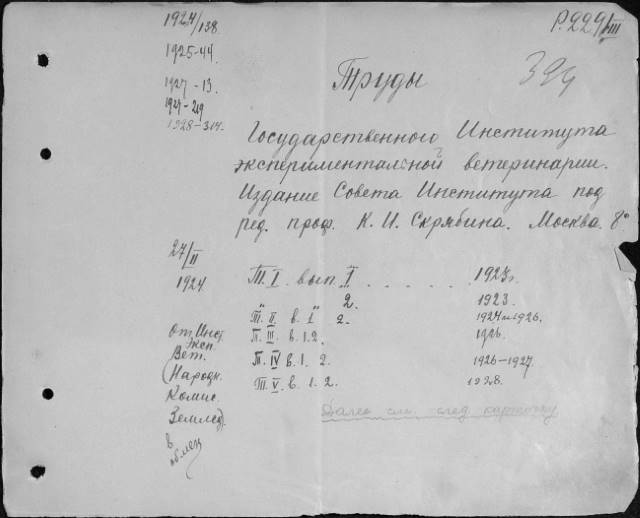 1924/138
1925-44.
1927-13.
1927-219
1928-314.
P.229/III
394
Труды
Государственного Института
экспериментальной ветеринарии.
Издание Совета Института под
ред. проф. К. И. Скрябина. Москва. 8°
27/II
1924
Т. I. вып. I . . . . . 1923г.
" " 2. 1923.
Т. II. в. 1 2. 1924 и 1926.
Т. III. в. 1. 2. 1926.
Т. IV в. 1. 2. 1926-1927.
Т. V. в. 1. 2. 1928.
Далее см. след. карточку
От Инст.
Эксп.
Вет.
(Народн.
Комис.
Землед).
в
обмен